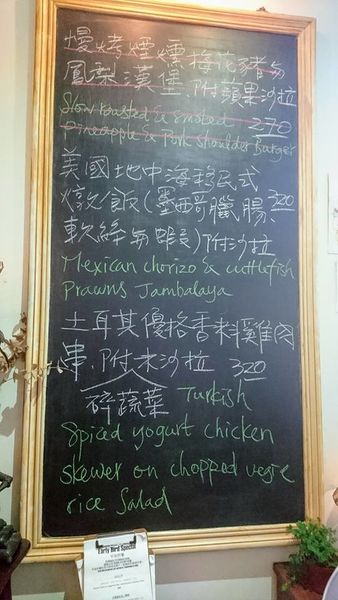 慢烤煙燻梅花豬肉
鳳梨漢堡.附蘋果沙拉
Slow roasted & smoked 270
Pineapple & Pork shoulder Burger
美國地中海移民式
燉飯(墨西哥臘腸 320
軟絲與蝦)附沙拉
Mexican chorizo & cuttlefish
Prawns Jambalaya
土耳其優格香料雞肉
串.附米沙拉 320
碎蔬菜 Turkish
Spiced yogurt chicken
skewer on chopped vegie
rice Salad
Early Bird Special